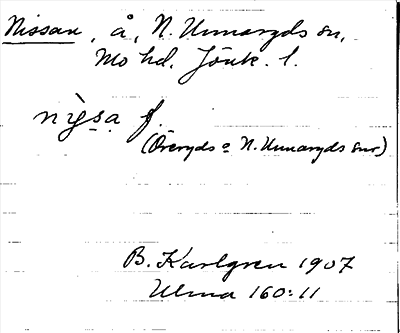 Nissan, å, N. Unnaryds sn,
Mo hd. Jönk. l.
nỳsa f.
(Öreryds o N. Unnaryds snr)
B. Karlgren 1907
Ulma 160:11